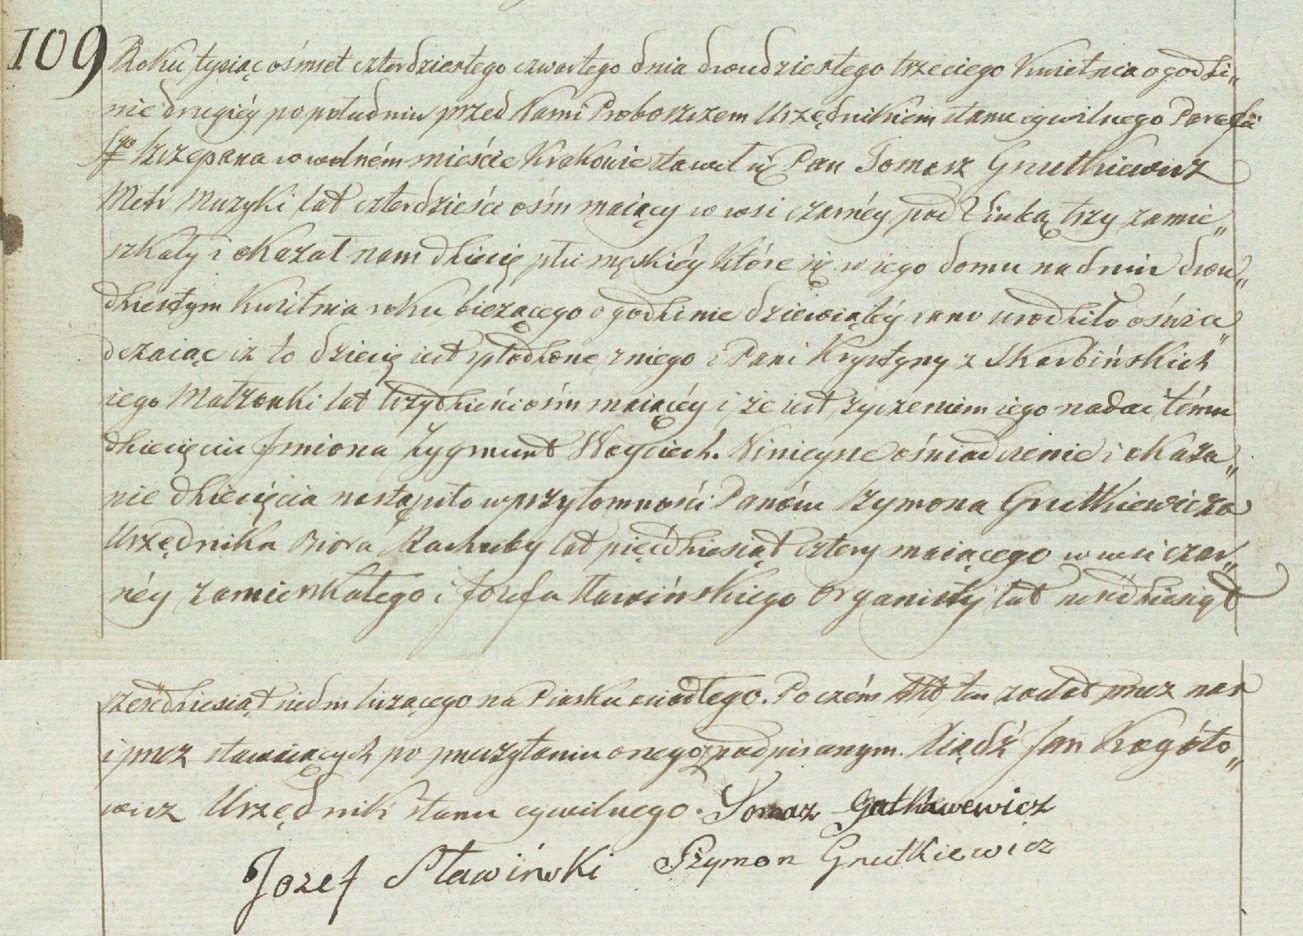 109
Roku tysiąc ośmset czterdziestego czwartego dnia dwudziestego trzeciego Kwietnia o godzi„
nie drugiéy po południu przed Nami Proboszczem Urzędnikiem stanu cywilnego Parafii
Sgo Szczepana w wolném mieście Krakowie stawił się Pan Tomasz Grutkiewicz
Metr Muzyki lat czterdzieści ośm maiący w wsi czarnéy pod Liczbą trzy zamie„
szkały i okazał nam dziecię płci męskiéy które się w iego domu na dniu dwu„
dziestym Kwietnia roku bieżącego o godzinie dziewiątéy rano urodziło oświa„
dczaiąc iż to dziecię iest spłodzone z niego i Pani Krystyny z Skarbińskich
iego Małżonki lat trzydzieści ośm maiącéy i że iest życzeniem iego nadać temu
dziecięciu Imiona Zygmunt Woyciech. Ninieysze oświadczenie i okaza„
nie dziecięcia nastąpiło w przytomności Panów Szymona Grutkiewicza
Urzędnika Biora Rachuby lat pięćdziesiąt cztery maiącego w wsi czar„
néy zamieszkałego i Józefa Sławińskiego Organisty lat sześćdziesiąt
sześćdziesiąt siedm liczącego na Piasku osiadłego. Po czém Akt ten został przez nas
i przez stawaiących po przeczytaniu onegoż podpisanym. Xiądz Jan
wicz Urzędnik stanu cywilnego. Tomasz
Jozef Sławiński Szymon Grutkiewicz